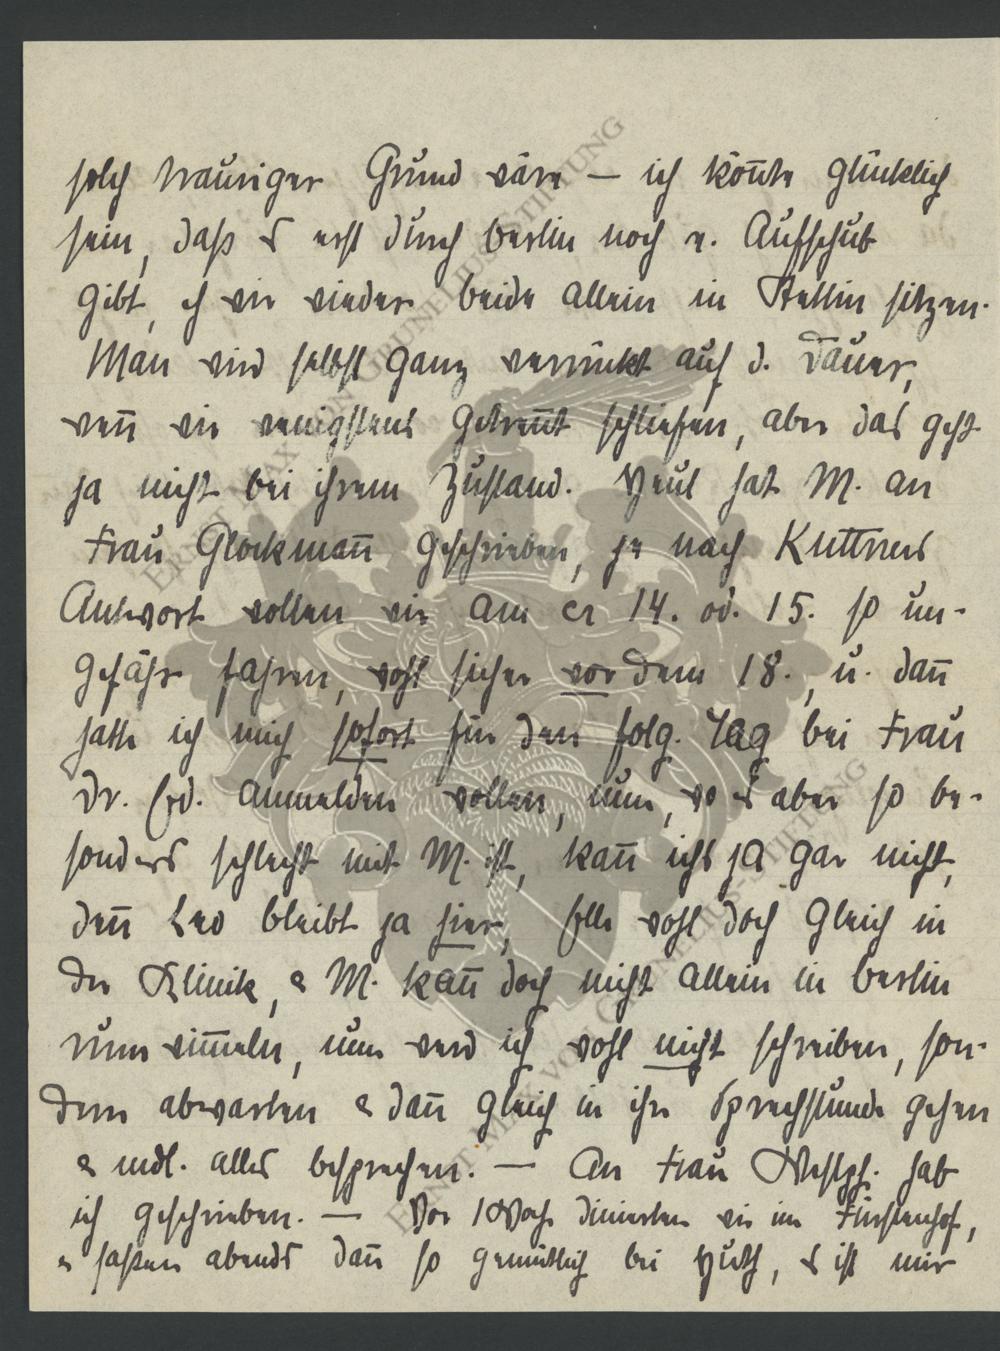 solch trauriger Grund wäre — ich kön̄te glücklich
sein, daß es erst durch Berlin noch e. Aufschub
gibt, eh wir wieder beide allein in Stettin sitzen.
Man wird selbst ganz verrückt auf d. Dauer,
wen̄ wir wenigstens getren̄t schliefen, aber das geht
ja nicht bei ihrem Zustand. Heut hat M. an
Frau Glockman̄ geschrieben, je nach Kuttners
Antwort wollen wir am cr 14. od. 15. so un-
gefähr fahren, wohl sicher vor dem 18., u. dan̄
hatte ich mich sofort für den folg. Tag bei Frau
Dr. anmelden wollen, nun, wo es aber so be-
sonders schlecht mit M. ist, kan̄ ichs ja gar nicht,
den̄ Leo bleibt ja hier, Elle wohl doch gleich in
der Klinik, & M. kan̄ doch nicht allein in Berlin
rum wim̄eln, nun werd ich wohl nicht schreiben, son-
dern abwarten & dan̄ gleich in ihre Sprechstunde gehen
& mdl. alles besprechen. — An Frau Westph. hab
ich geschrieben. — Vor 1 Woche dinierten wir im Fürstenhof,
& saßen abends dan̄ so gemütlich bei Huth, es ist mir
ERNST MAX VON GRUNELIUS-STIFTUNG
ERNST MAX VON GRUNELIUS-STIFTUNG